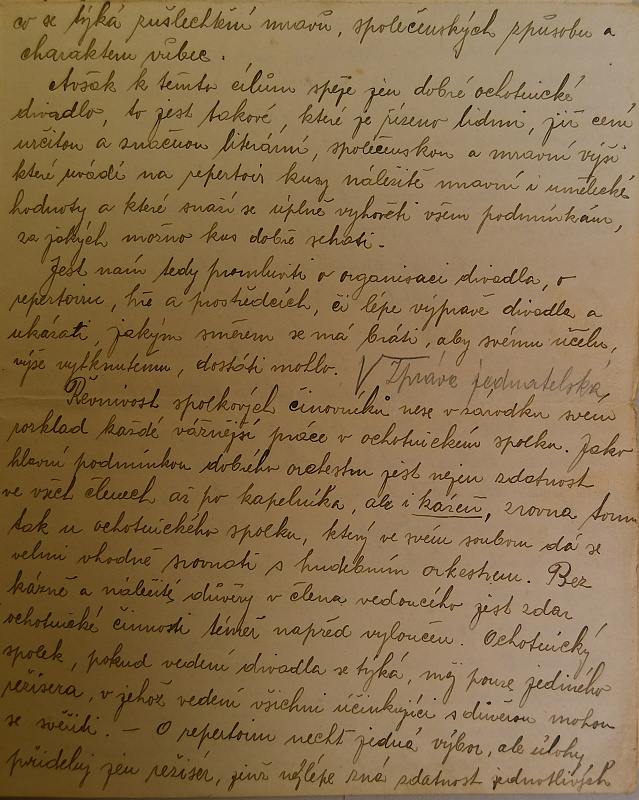 co se týká zušlechtění mravů, společenských způsobu a
charakteru vůbec.
Avšak k těmto cílům spěje jen dobré ochotnické
divadlo, to jest takové, které je řízeno lidmi, již cení
určitou a značnou literární, společenskou a mravní výši
které uvádí na repertoir kusy náležité mravní i umělecké
hodnoty a které snaží se úplně vyhověti všem podmínkám,
za jakých možno kus dobře sehráti.
Jest nám tedy promluviti o organisaci divadla, o
repertoiru, hře a prostředcích, či lépe výpravě divadla a
ukázati, jakým směrem se má bráti, aby svému účelu,
výše vytknutému, dostáti mohlo. V Zpráva jednatelská
Řevnivost spolkových činovníků nese v zárodku svém
rozklad každé vážnější práce v ochotnickém spolku. Jako
hlavní podmínkou dobrého orchestru jest nejen zdatnost
ve všech členech až po kapelníka, ale i kázeň, zrovna tomu
tak u ochotnického spolku, který ve svém souboru dá se
velmi vhodně srovnati s hudebním orkestrem. Bez
kázně a náležité důvěry v člena vedoucího jest zdar
ochotnické činnosti téměř napřed vyloučen. Ochotnický
spolek, pokud vedení divadla se týká, měj pouze jediného
režisera, v jehož vedení všichni účinkující s důvěrou mohou
se svěřiti. — O repertoiru nechť jedná výbor, ale úlohy
přiděluj jen režisér, jenž nejlépe zná zdatnost jednotlivých